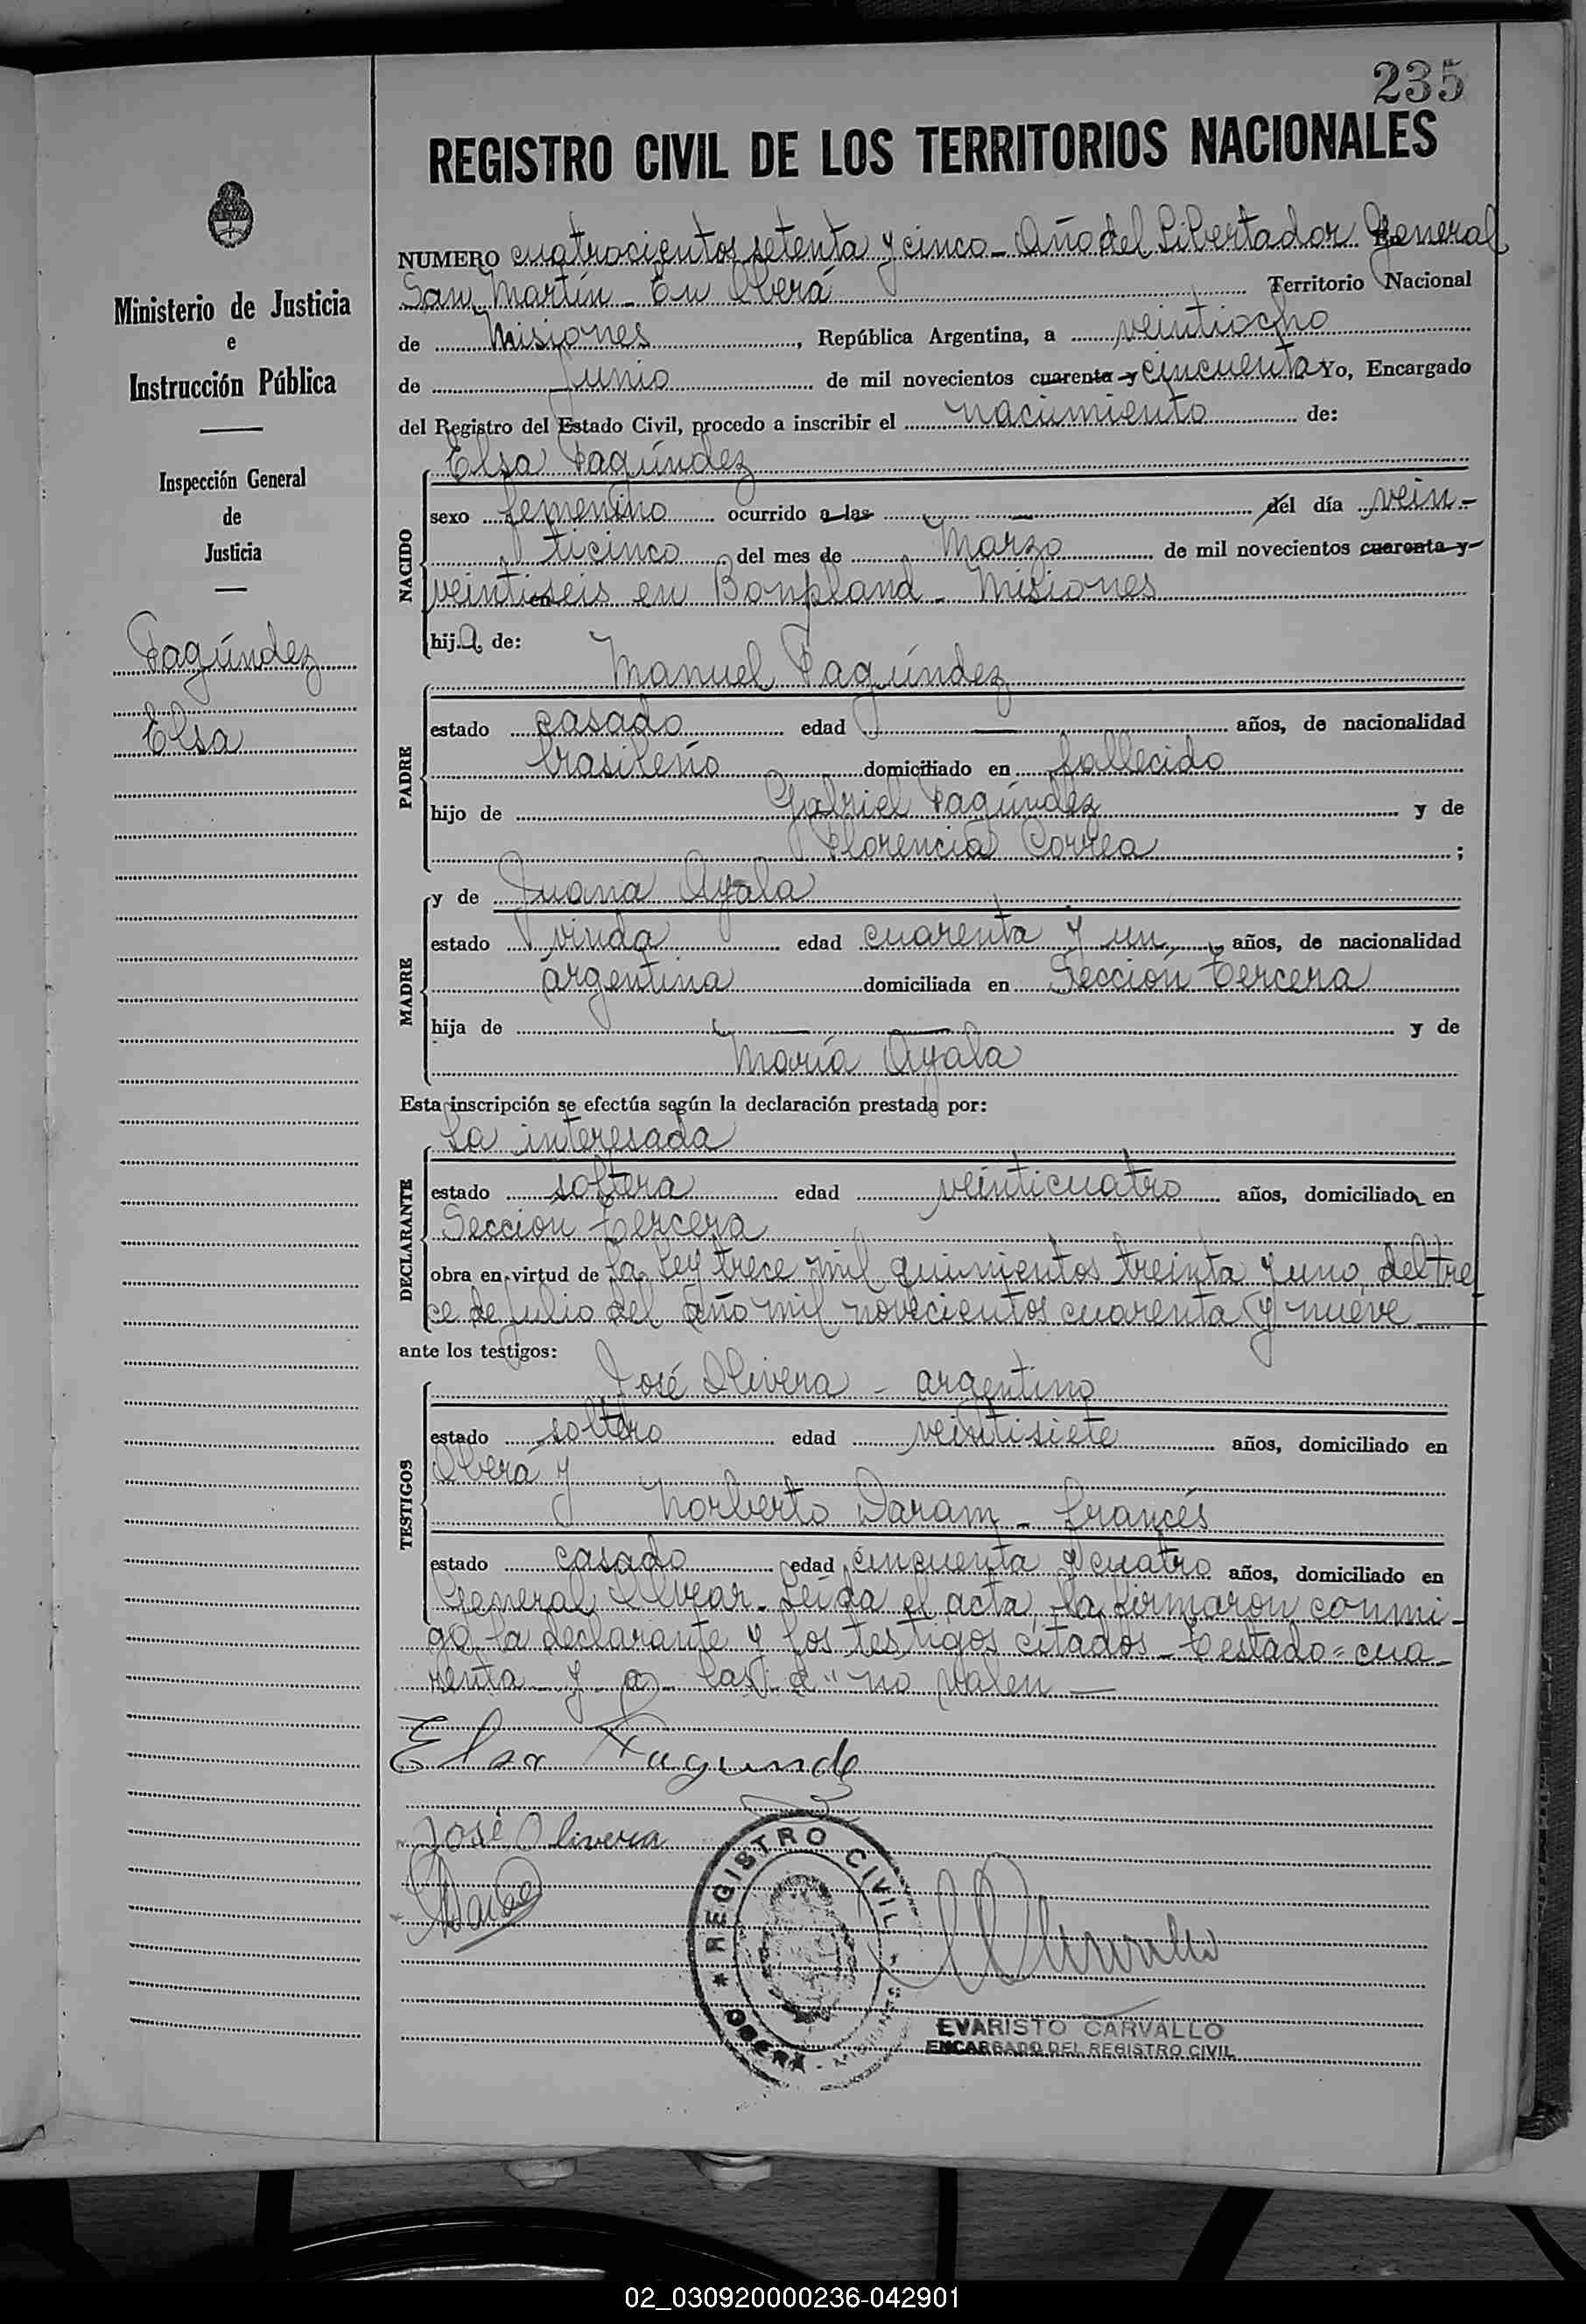 235
REGISTRO CIVIL DE LOS TERRITORIOS NACIONALES
Ministerio de Justicia
e
Instrucción Pública
Inspección General
de
Justicia
Fagúndez
Elsa
NUMERO cuatrocientos setenta y cinco - Año del Libertador General
San Martín - En Oberá Territorio Nacional
de Misiones, República Argentina, a veintiocho
de Junio de mil novecientos cuarenta y cincuenta Yo, Encargado
del Registro del Estado Civil, procedo a inscribir el nacimiento de:
NACIDO
Elsa Fagúndez
sexo femenino ocurrido a las — del día vein-
ticinco del mes de Marzo de mil novecientos cuarenta y
veintiseis en Bonpland - Misiones
hija de:
PADRE
Manuel Fagúndez
estado casado edad — años, de nacionalidad
brasileño domiciliado en fallecido
hijo de Gabriel Fagúndez y de
Florencia Correa ;
MADRE
y de Juana Ayala
estado viuda edad cuarenta y un años, de nacionalidad
argentina domiciliada en Sección tercera
hija de — — y de
María Ayala
Esta inscripción se efectúa según la declaración prestada por:
DECLARANTE
La interesada
estado soltera edad veinticuatro años, domiciliada en
Sección tercera
obra en virtud de la Ley trece mil quinientos treinta y uno del tre
ce de Julio del año mil novecientos cuarenta y nueve —
ante los testigos:
TESTIGOS
José Olivera - argentino
estado soltero edad veintisiete años, domiciliado en
Oberá y
Norberto Daram - francés
estado casado edad cincuenta y cuatro años, domiciliado en
General Alvear. Leída el acta, la firmaron conmi-
go la declarante y los testigos citados - testado = cua-
renta - y - a - las - d" no valen —
Elsa Fagundez
José Olivera
REGISTRO CIVIL
* OBERA - MISIONES
EVARISTO CARVALLO
ENCARGADO DEL REGISTRO CIVIL
02_030920000236-042901